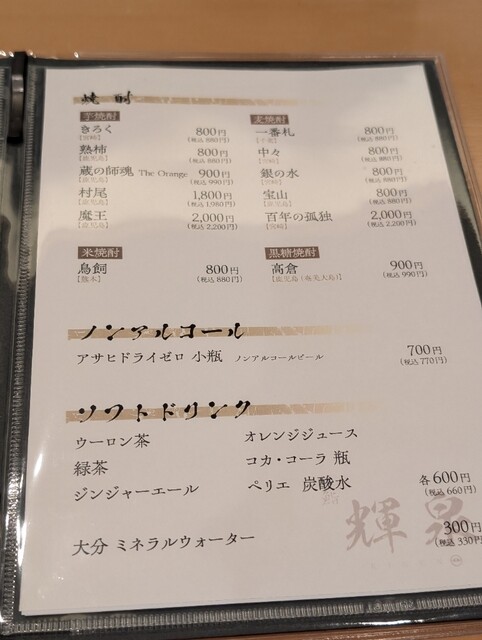 焼酎
芋焼酎
きろく 800円
【宮崎】 (税込 880円)
熟柿 800円
【鹿児島】 (税込 880円)
蔵の師魂 The Orange 900円
【鹿児島】 (税込 990円)
村尾 1,800円
【鹿児島】 (税込 1,980円)
魔王 2,000円
【鹿児島】 (税込 2,200円)
麦焼酎
一番札 800円
(税込 880円)
中々 800円
【宮崎】 (税込 880円)
銀の水 800円
【宮崎】 (税込 880円)
宝山 800円
【鹿児島】 (税込 880円)
百年の孤独 2,000円
【宮崎】 (税込 2,200円)
米焼酎
鳥飼 800円
【熊本】 (税込 880円)
黒糖焼酎
高倉 900円
【鹿児島(奄美大島)】 (税込 990円)
ノンアルコール
アサヒドライゼロ 小瓶 ノンアルコールビール 700円
(税込 770円)
ソフトドリンク
ウーロン茶
緑茶
ジンジャーエール
オレンジジュース
コカ・コーラ 瓶
ペリエ 炭酸水 各 600円
(税込 660円)
大分 ミネラルウォーター 300円
(税込 330円)
輝泉